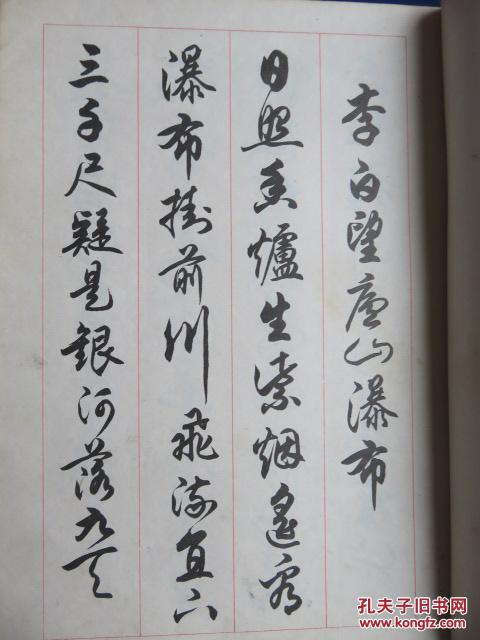 李白望庐山瀑布
日照香爐生紫烟遙看
瀑布掛前川飛流直下
三千尺疑是銀河落九天
孔夫子旧书网
www.kongfz.com